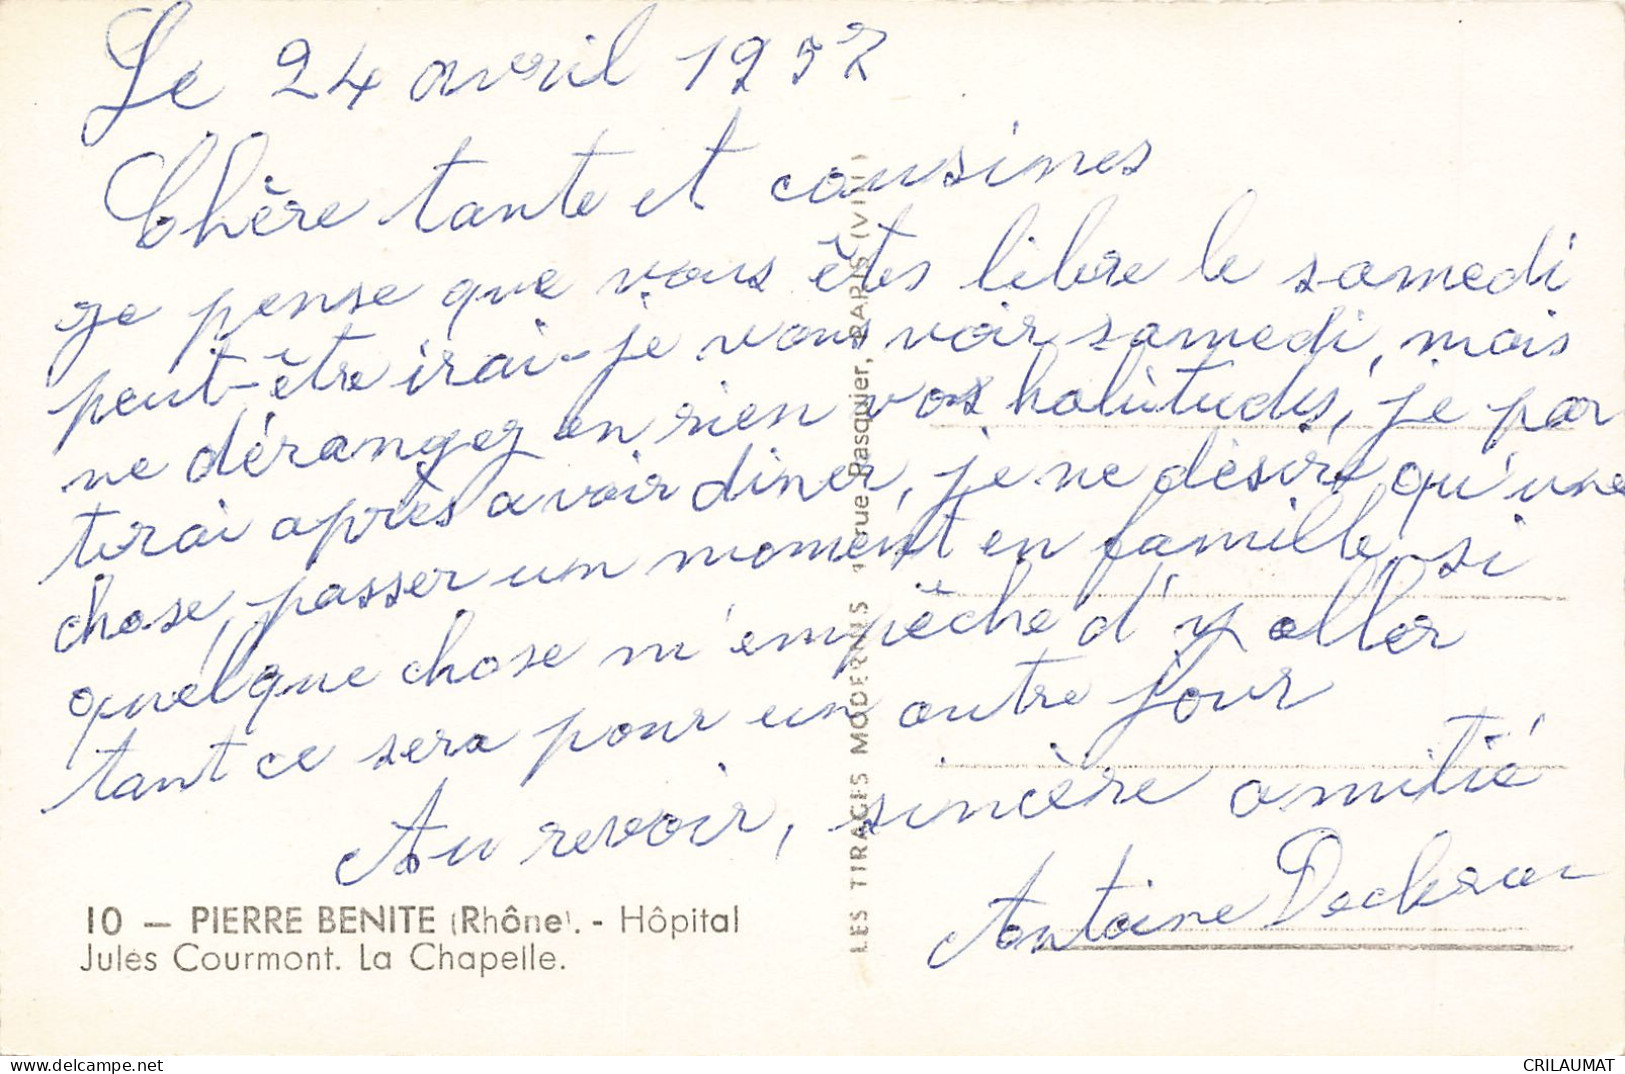 Le 24 avril 1957
Chère tante et cousines
je pense que vous êtes libre le samedi
peut-être irai-je vous voir samedi, mais
ne dérangez en rien vos habitudes, je par
tirai après avoir diner, je ne désire qu'une
chose, passer un moment en famille, si
quelque chose m'empêche d'y aller
tant ce sera pour un autre jour
Au revoir, sincère amitié
Antoine
10 — PIERRE BENITE (Rhône). - Hôpital
Jules Courmont. La Chapelle.
LES TIRAGES MODERNES rue Pasquier, PARIS (VIII)
CRILAUMAT